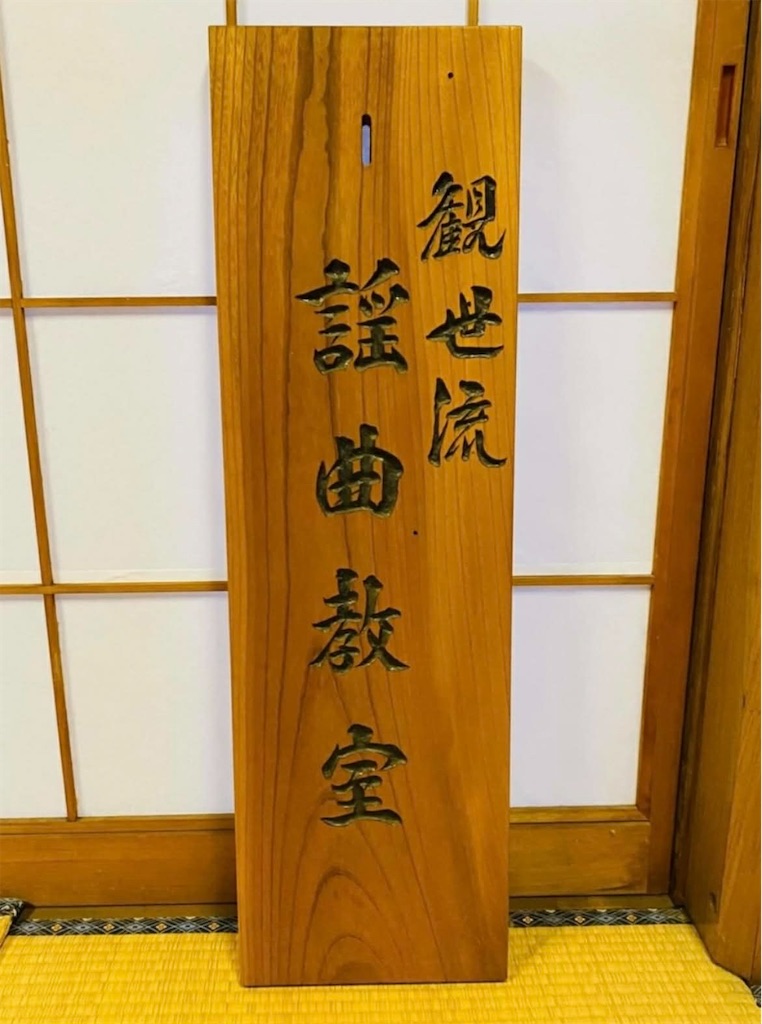 観世流
謡曲教室